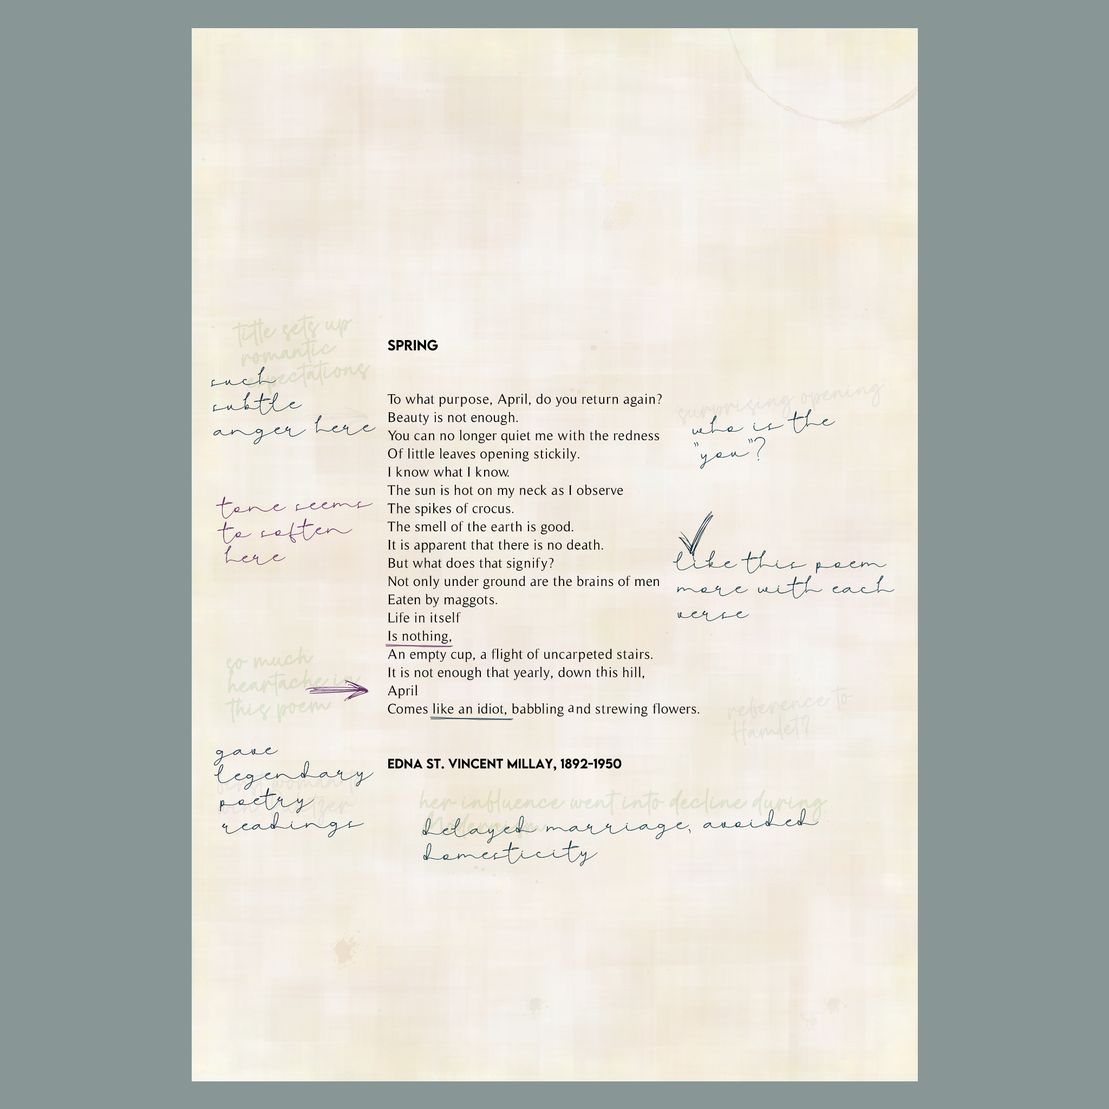 title sets up
romantic
such
subtle
anger here
SPRING
To what purpose, April, do you return again?
Beauty is not enough.
You can no longer quiet me with the redness
Of little leaves opening stickily.
I know what I know.
The sun is hot on my neck as I observe
The spikes of crocus.
The smell of the earth is good.
It is apparent that there is no death.
But what does that signify?
Not only under ground are the brains of men
Eaten by maggots.
Life in itself
Is nothing,
An empty cup, a flight of uncarpeted stairs.
It is not enough that yearly, down this hill,
April
Comes like an idiot, babbling and strewing flowers.
EDNA ST. VINCENT MILLAY, 1892-1950
surprising opening
who is the
"you"?
tone seems
to soften
here
like this poem
more with each
verse
so much
heartache in
this poem
reference to
Hamlet?
gave
legendary
poetry
readings
her influence went into decline during
delayed marriage, avoided
domesticity